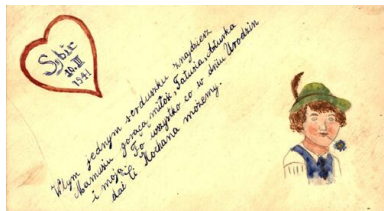 Sybir
10.III
1941
W tym jednym serduszku znajdziesz
Mamusiu gorącą miłość, Tatusia, Ażuska
i moją. To wszystko co w dniu Urodzin
dać Ci Kochana możemy.